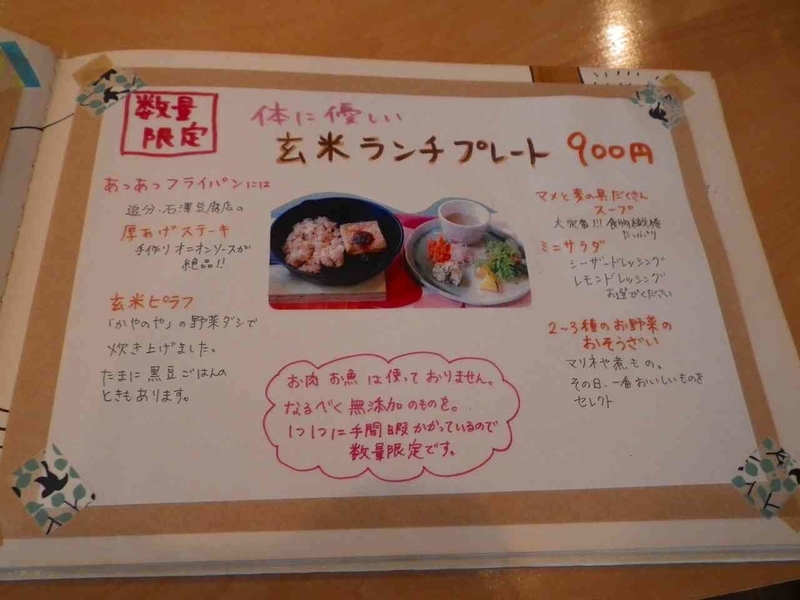 数量
限定
体に優しい
玄米ランチプレート 900円
あつあつフライパンには
追分・石澤豆腐店の
厚あげステーキ
手作りオニオンソースが
絶品!!
玄米ピラフ
「かやのや」の野菜ダシで
炊き上げました。
たまに黒豆ごはんの
ときもあります。
マメと麦の具だくさん
スープ
大定番!!! 食物繊維
たっぷり
ミニサラダ
シーザードレッシング
レモンドレッシング
お選びください
2~3種のお野菜の
おそうざい
マリネや煮もの。
その日、一番おいしいものを
セレクト
お肉お魚は使っておりません。
なるべく無添加のものを。
1つ1つに手間暇かかっているので
数量限定です。